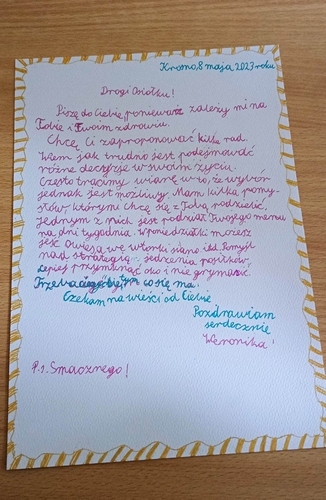 Krosno, 8 maja 2023 roku
Drogi Osiołku!
Piszę do Ciebie, ponieważ zależy mi na
Tobie i Twoim zdrowiu.
Chcę Ci zaproponować kilka rad.
Wiem jak trudno jest podejmować
różne decyzje w swoim życiu.
Często tracimy wiarę w to, że wybór
jednak jest możliwy. Mam kilka pomy-
słów, którymi chcę się z Tobą podzielić.
Jednym z nich jest podział Twojego menu
na dni tygodnia. W poniedziałki możesz
jeść owies, a we wtorki siano itd. Pomyśl
nad strategią jedzenia posiłków,
Lepiej przymknąć oko i nie grymasić.
Trzeba cieszyć się tym co się ma.
Czekam na wieści od Ciebie
Pozdrawiam
serdecznie
Weronika!
P.s. Smacznego!